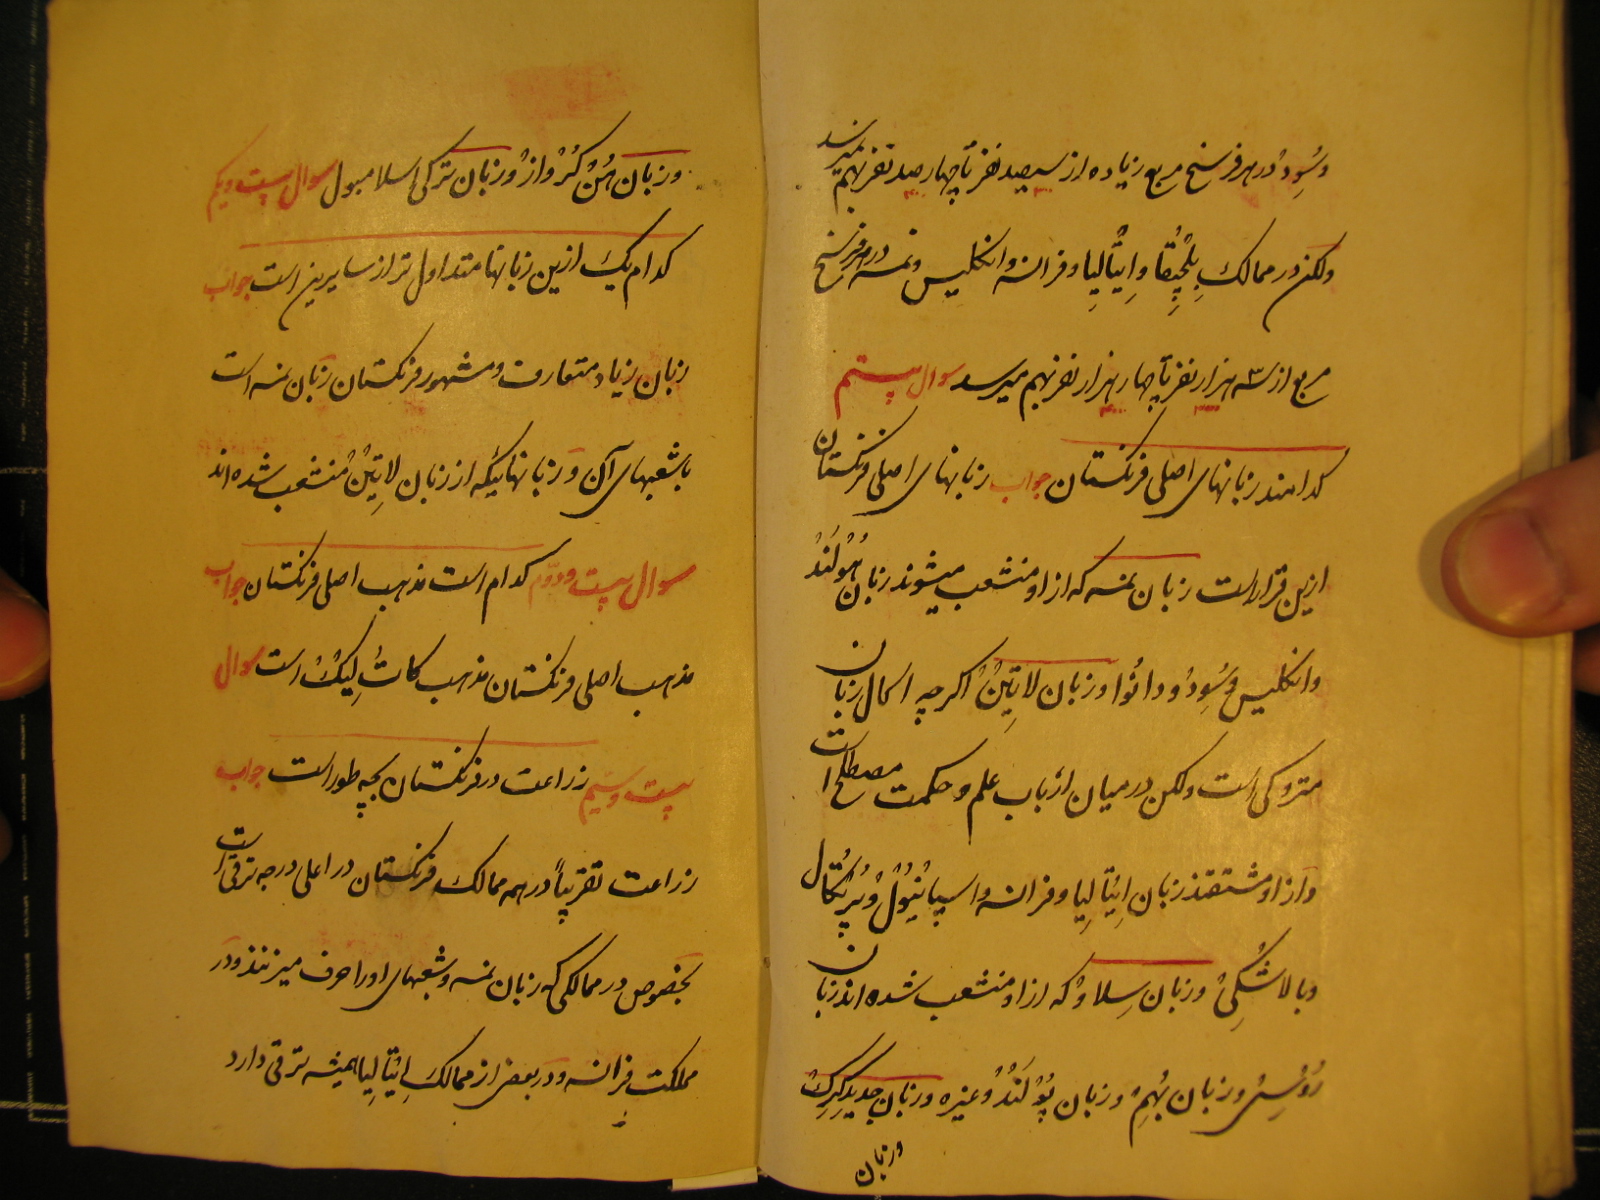 وسُوِدْ در هر فرسنخ مربع زیاده از سیصد نفر تا چهار صد نفر بهم میرسد
ولکن در ممالک بِلْجِیْقا و اِیتٰالِیا و فرانسه و انکلیس و نمسه در هر فرسنخ
مربع از سه هزار نفر تا چهار هزار نفر بهم میرسد سوال بیستم
کدامند زبانهای اصلی فرنکستان جواب زبانهای اصلی فرنکستان
ازین قرار است زبان نمسه که از او منشعب میشوند زبان هُوْلَنْدْ
وانکلیس و سُوِدْ و دانْوا و زبان لاتِیْنْ اکر چه اکمال زبان
متروکی است ولکن در میان ارباب علم و حکمت مصطلح است
و از او مشتقند زبان اِیْتٰالِیا و فرانسه و اسپانْیُوْلْ و پُرْتُکٰال
و بالاشْکِیْ و زبان سِلاوْ که از او منشعب شده اند زبان
رُوْسِیْ و زبان بُهِمْ و زبان پُوْلَنْدْ و غیره و زبان جدید کِرِکْ
و زبان
و زبان هُنْ کْرُوْاز و زبان ترکی اسلامبول سوال بیست ویکم
کدام یک ازین زبانها متداول تر از سایرین است جواب
زبان زیاد متعارف و مشهور فرنکستان زبان نمسه است
با شعبهای آن و زبانهائیکه از زبان لاتِیْنْ منشعب شده اند
سوال بیست ودوّم کدام است مذهب اصلی فرنکستان جواب
مذهب اصلی فرنکستان مذهب کاتُلِیْکْ است سوال
بیست وسیّم زراعت در فرنکستان بچه طور است جواب
زراعت تقریباً در همه ممالک فرنکستان در اعلی درجه ترقی است
بخصوص در ممالکی که زبان نمسه و شعبهای او را حرف میزنند و در
مملکت فرانسه و در بعضی از ممالک اِیْتٰالِیا همیشه ترقی دارد